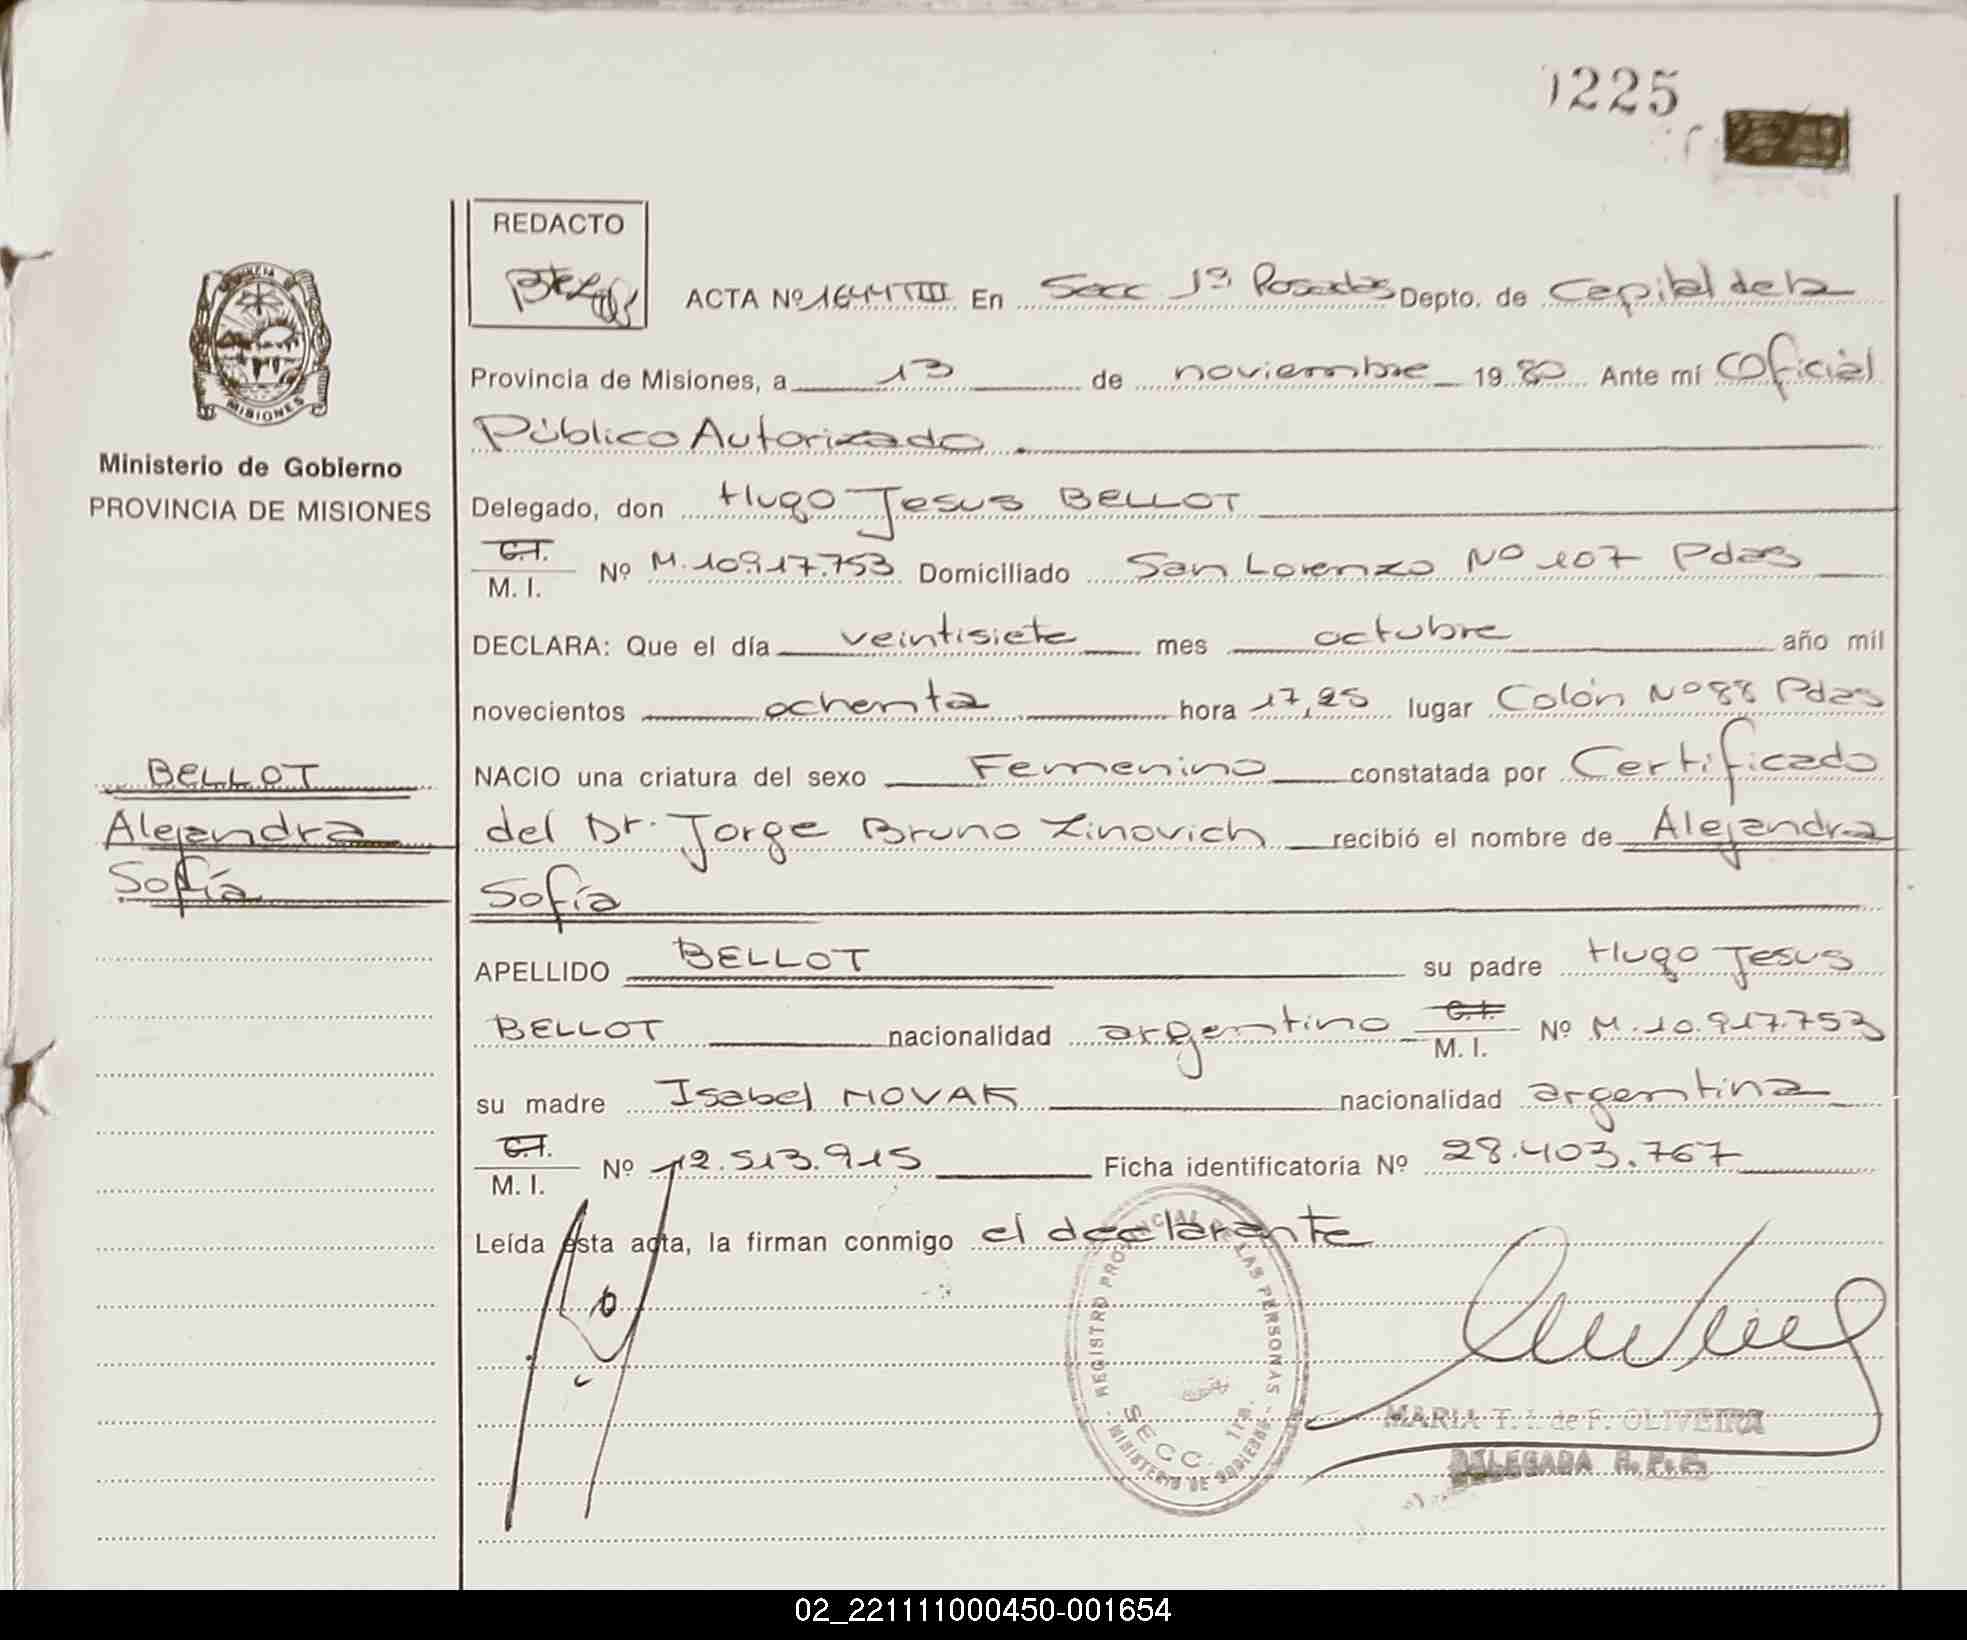 1225
REDACTO
ACTA Nº 1644 TIII En Secc 1ª Posadas Depto. de Capital de la
Provincia de Misiones, a 13 de noviembre 1980 Ante mí Oficial
Público Autorizado
MISIONES
Ministerio de Gobierno
PROVINCIA DE MISIONES
Delegado, don Hugo Jesus BELLOT
C.I.
M. I. Nº M.10.917.753 Domiciliado San Lorenzo Nº 107 Pdas
DECLARA: Que el día veintisiete mes octubre año mil
novecientos ochenta hora 17,25 lugar Colón Nº 88 Pdas
BELLOT
Alejandra
Sofía
NACIO una criatura del sexo Femenino constatada por Certificado
del Dr. Jorge Bruno Zinovich recibió el nombre de Alejandra
Sofía
APELLIDO BELLOT su padre Hugo Jesus
BELLOT nacionalidad argentino C.I. M. I. Nº M.10.917.753
su madre Isabel NOVAK nacionalidad argentina
C.I.
M. I. Nº 12.513.915 Ficha identificatoria Nº 28.403.767
Leída esta acta, la firman conmigo el declarante
REGISTRO PROVINCIAL DE LAS PERSONAS
SECC. 1ra.
MINISTERIO DE GOBIERNO
MARIA T. I. de F. OLIVEIRA
DELEGADA R.P.P.
02_221111000450-001654